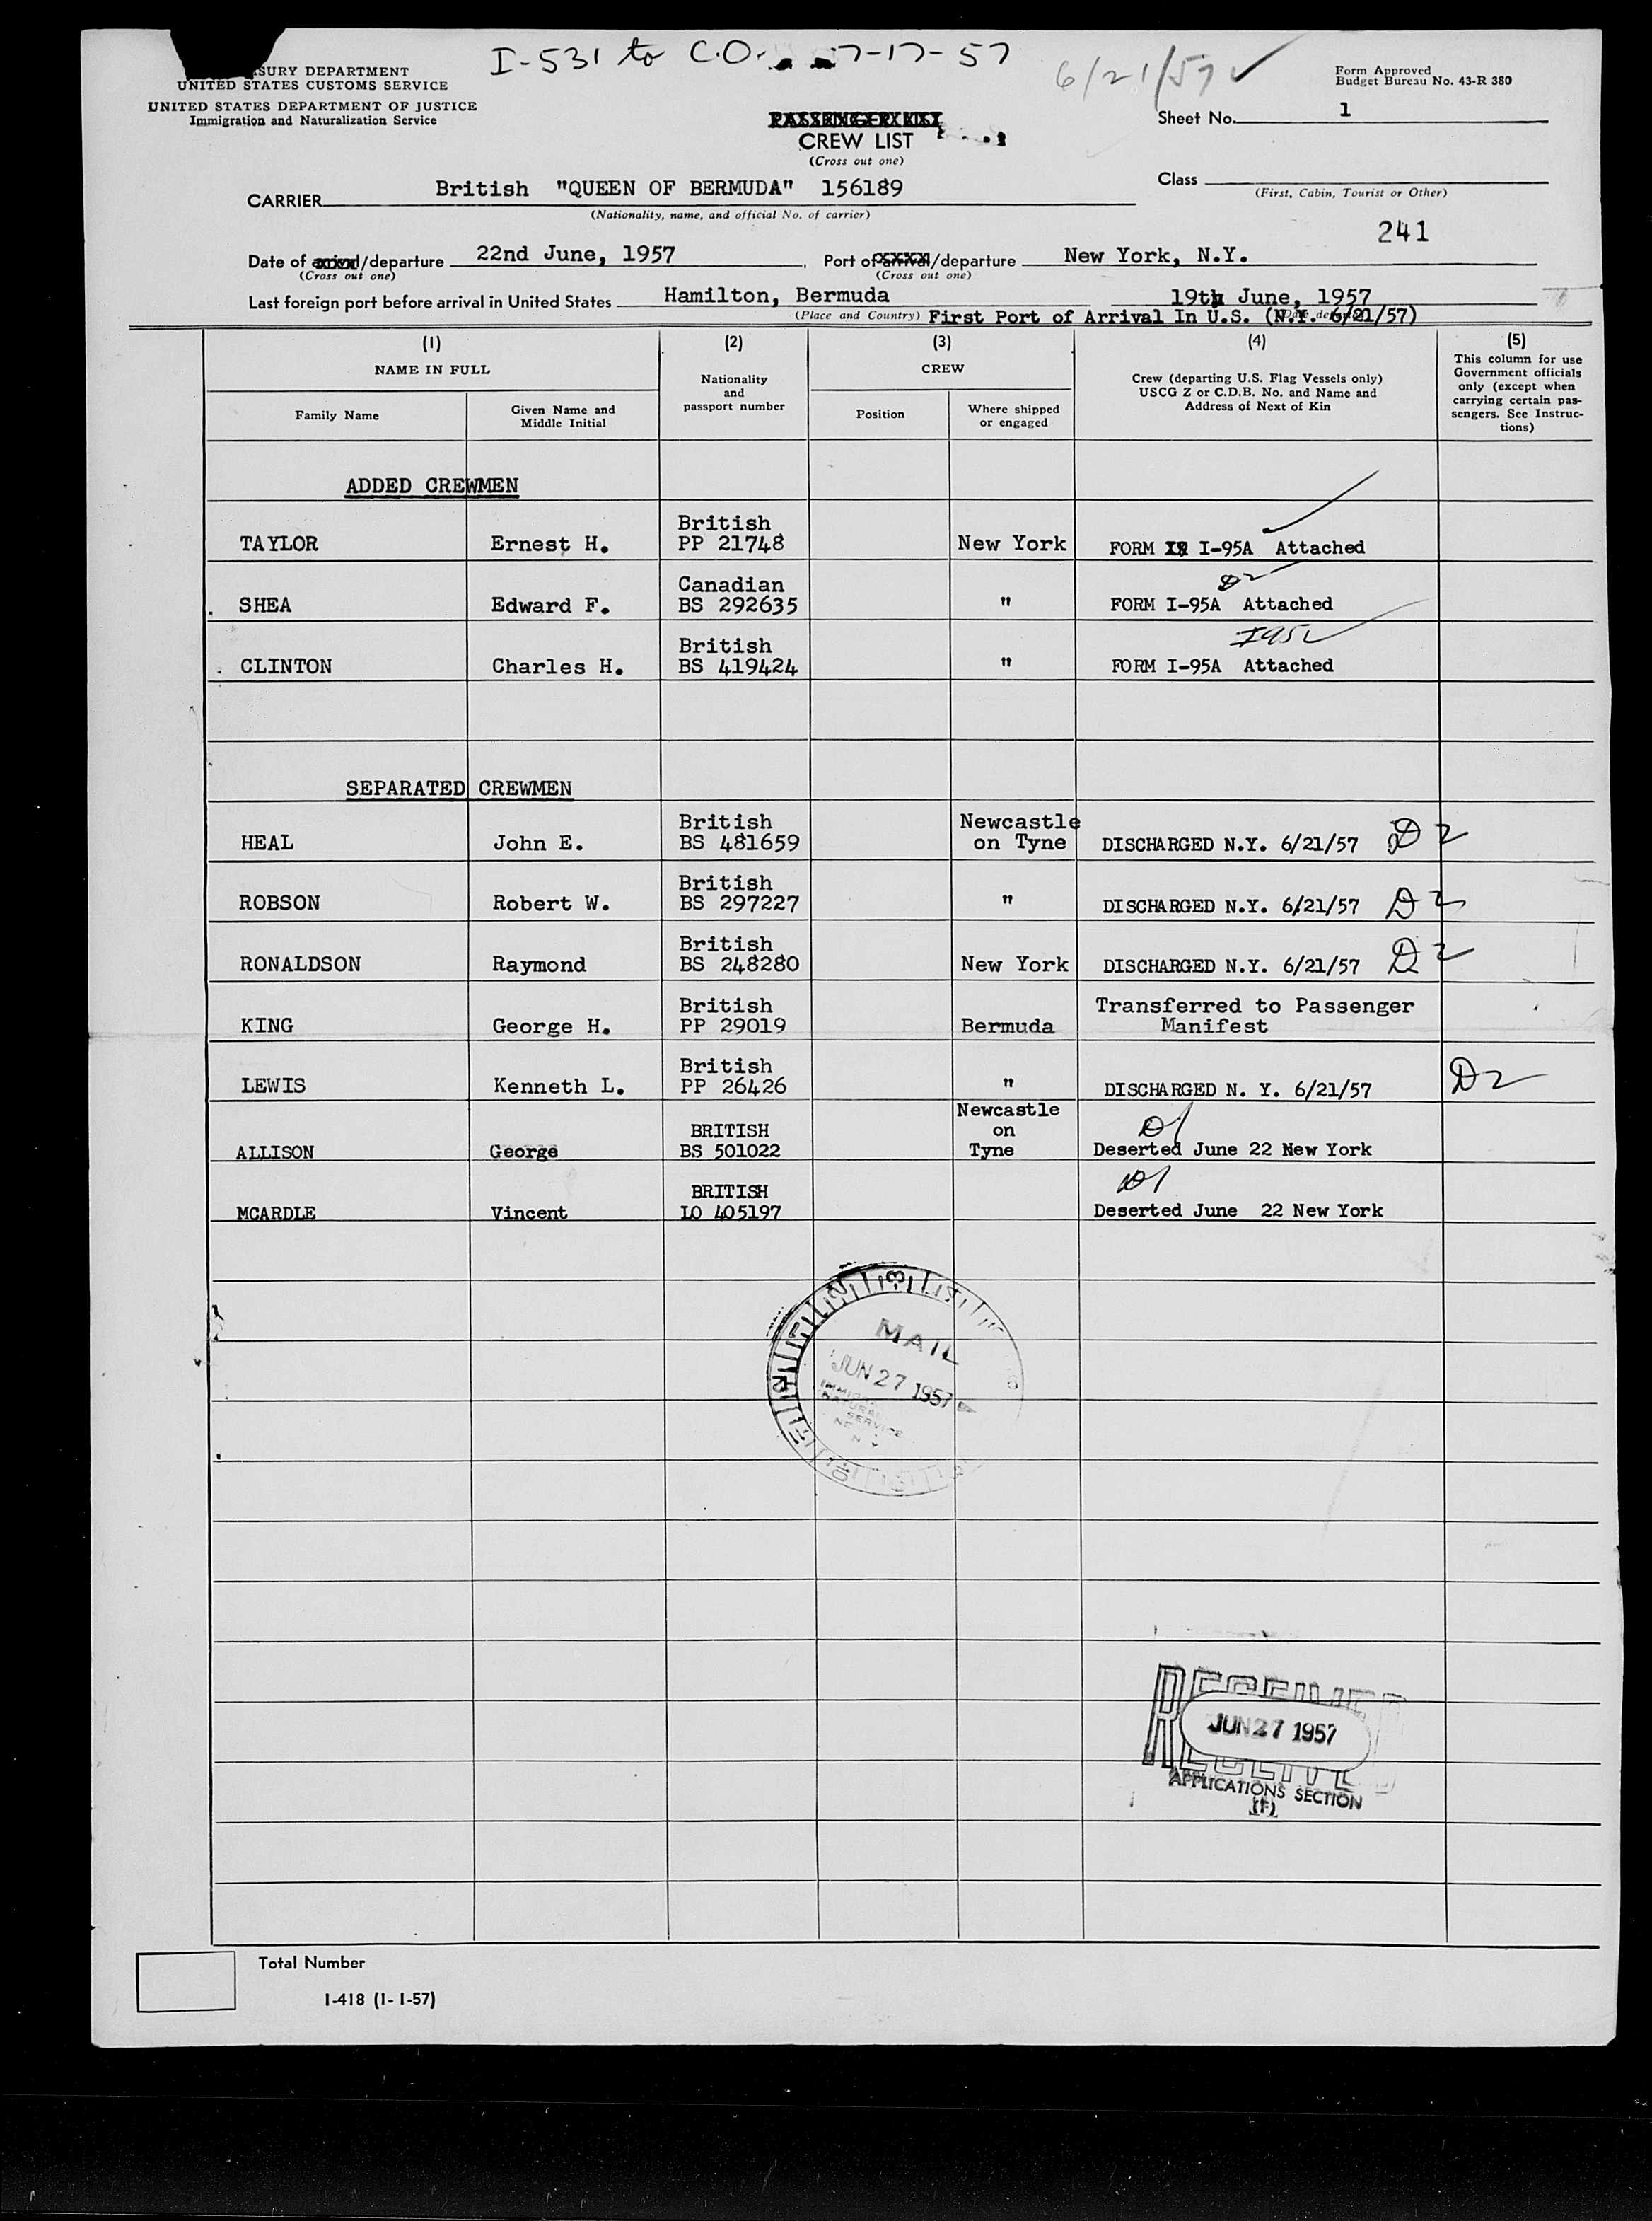 I-531 to C.O. 7-17-57
6/21/57 ✓
SURY DEPARTMENT
UNITED STATES CUSTOMS SERVICE
UNITED STATES DEPARTMENT OF JUSTICE
Immigration and Naturalization Service
Form Approved
Budget Bureau No. 43-R 380
PASSENGER LIST
CREW LIST
(Cross out one)
Sheet No. 1
CARRIER British "QUEEN OF BERMUDA" 156189
(Nationality, name, and official No. of carrier)
Class
(First, Cabin, Tourist or Other)
241
Date of arrival/departure 22nd June, 1957, Port of arrival/departure New York, N.Y.
(Cross out one) (Cross out one)
Last foreign port before arrival in United States Hamilton, Bermuda 19th June, 1957
(Place and Country) First Port of Arrival In U.S. (N.Y. 6/21/57)
(1) (2) (3) (4) (5)
NAME IN FULL
Family Name
Given Name and
Middle Initial
Nationality
and
passport number
CREW
Position
Where shipped
or engaged
Crew (departing U.S. Flag Vessels only)
USCG Z or C.D.B. No. and Name and
Address of Next of Kin
This column for use
Government officials
only (except when
carrying certain pas-
sengers. See Instruc-
tions)
ADDED CREWMEN
British
TAYLOR Ernest H. PP 21748 New York FORM I-95A Attached
Canadian D2
SHEA Edward F. BS 292635 " FORM I-95A Attached
British I95
CLINTON Charles H. BS 419424 " FORM I-95A Attached
SEPARATED CREWMEN
British Newcastle
HEAL John E. BS 481659 on Tyne DISCHARGED N.Y. 6/21/57 D2
British
ROBSON Robert W. BS 297227 " DISCHARGED N.Y. 6/21/57 D2
British
RONALDSON Raymond BS 248280 New York DISCHARGED N.Y. 6/21/57 D2
British Transferred to Passenger
KING George H. PP 29019 Bermuda Manifest
British
LEWIS Kenneth L. PP 26426 " DISCHARGED N. Y. 6/21/57 D2
Newcastle
BRITISH on D1
ALLISON George BS 501022 Tyne Deserted June 22 New York
BRITISH D1
MCARDLE Vincent LO 405197 Deserted June 22 New York
MAIL
JUN 27 1957
SERVICE
N Y
RECEIVED
JUN 27 1957
APPLICATIONS SECTION
Total Number
I-418 (1-1-57)